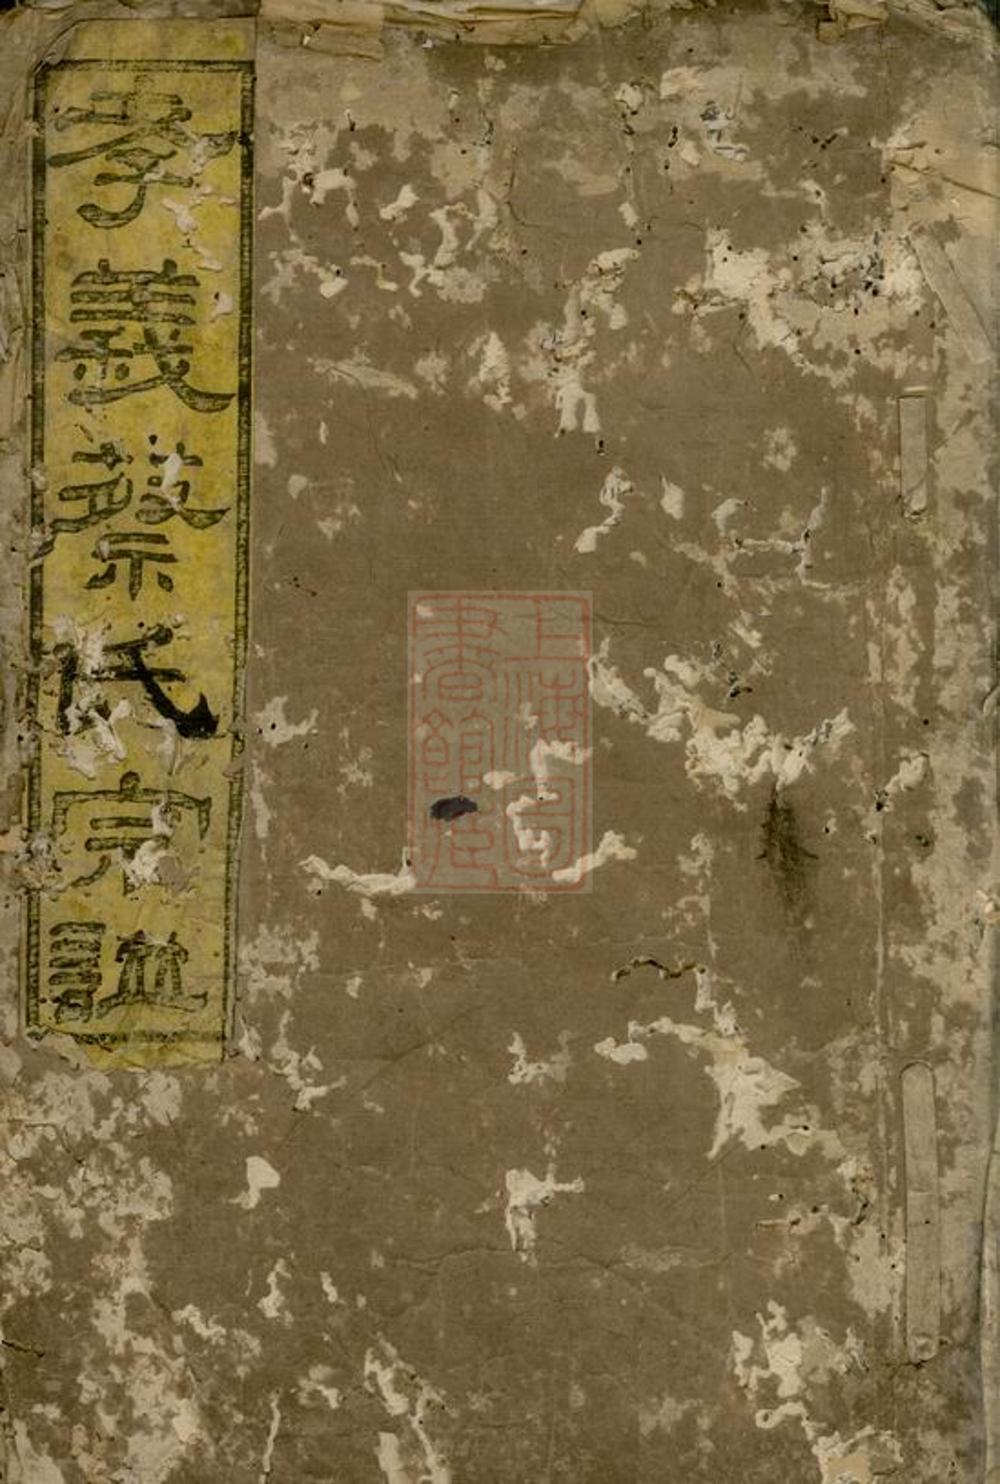 孝義蔡氏宗譜
上海圖
書館藏